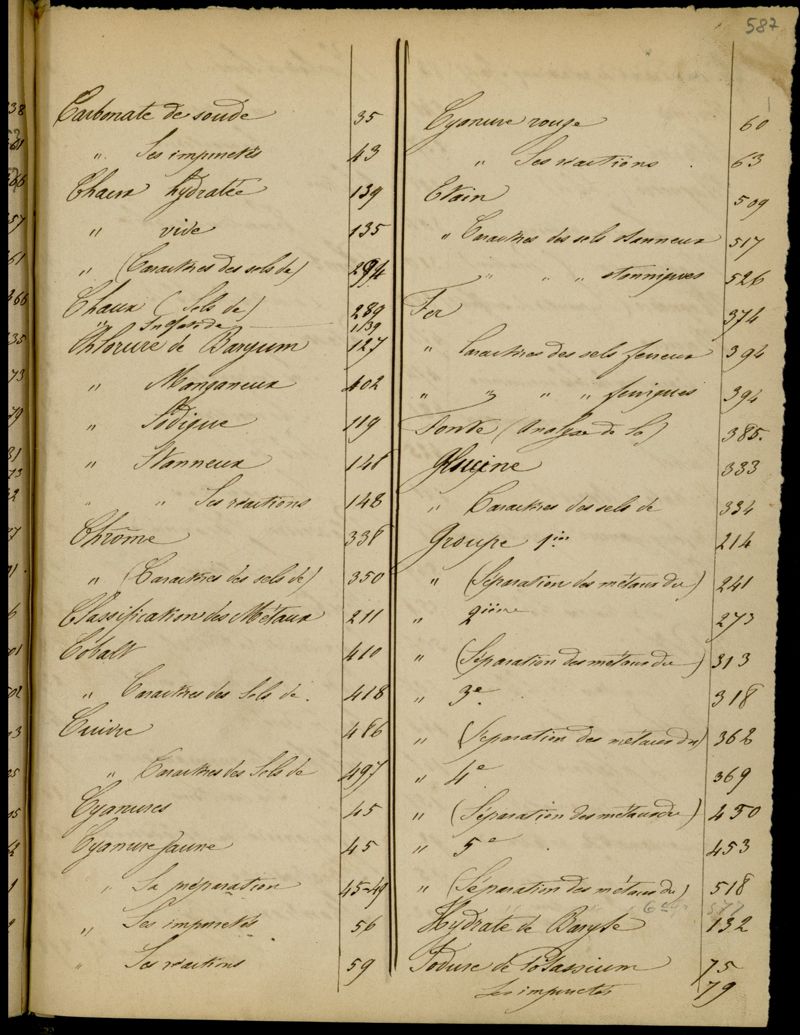 587
Carbonate de soude 35
" Ses impuretés 43
Chaux hydratée 139
" vive 135
" (Caractères des sels de) 294
Chaux (Sels de) 289
" 1139
Chlorure de Baryum 127
" Manganeux 402
" Sodique 119
" Stanneux 146
" " Ses réactions 148
Chrôme 338
" (Caractères des sels de) 350
Classification des Métaux 211
Cobalt 410
" Caractères des Sels de 418
Cuivre 486
" Caractères des Sels de 497
Cyanures 45
Cyanure Jaune 45
" Sa préparation 45-49
" Ses impuretés 56
" Ses réactions 59
Cyanure rouge 60
" Ses réactions 63
Etain 509
" Caractères des sels stanneux 517
" " " stanniques 526
Fer 374
" Caractères des sels ferreux 394
" " " " ferriques 394
Fonte (Analyse de la) 385.
Glucine 333
" Caractères des sels de 334
Groupe 1ier 214
" (Séparation des métaux du) 241
" 2ième 273
" (Séparation des métaux du) 313
" 3e 318
" (Séparation des métaux du) 362
" 4e 369
" (Séparation des métaux du) 450
" 5e 453
" (Séparation des métaux du) 518
" 6e 577
Hydrate de Baryte 132
Iodure de Potassium 75
Ses impuretés 79